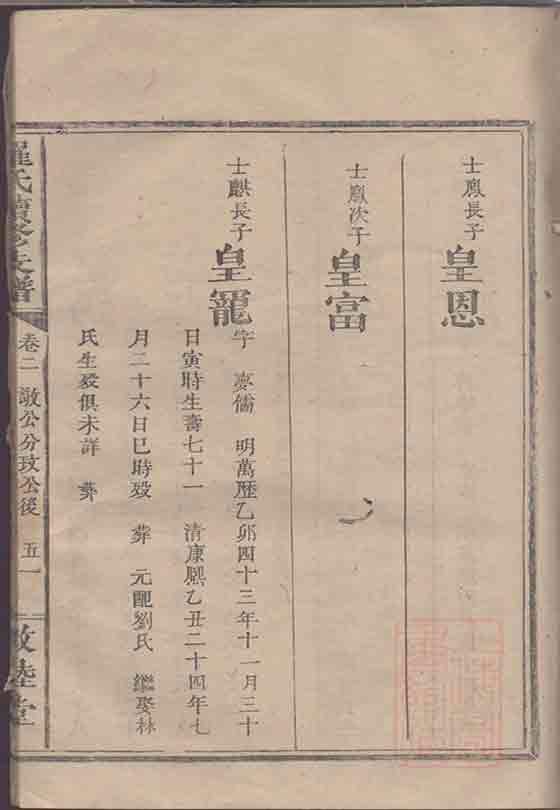 士鳳長子
皇恩
士鳳次子
皇富
士麒長子
皇寵
字 夢儒 明萬歷乙卯四十三年十一月三十
日寅時生壽七十一 清康熙乙丑二十四年七
月二十六日巳時歿 葬 元配劉氏 繼娶林
氏生歿俱未詳 葬
羅氏續修支譜
卷二 敞公分玫公後 五一
敦陸堂